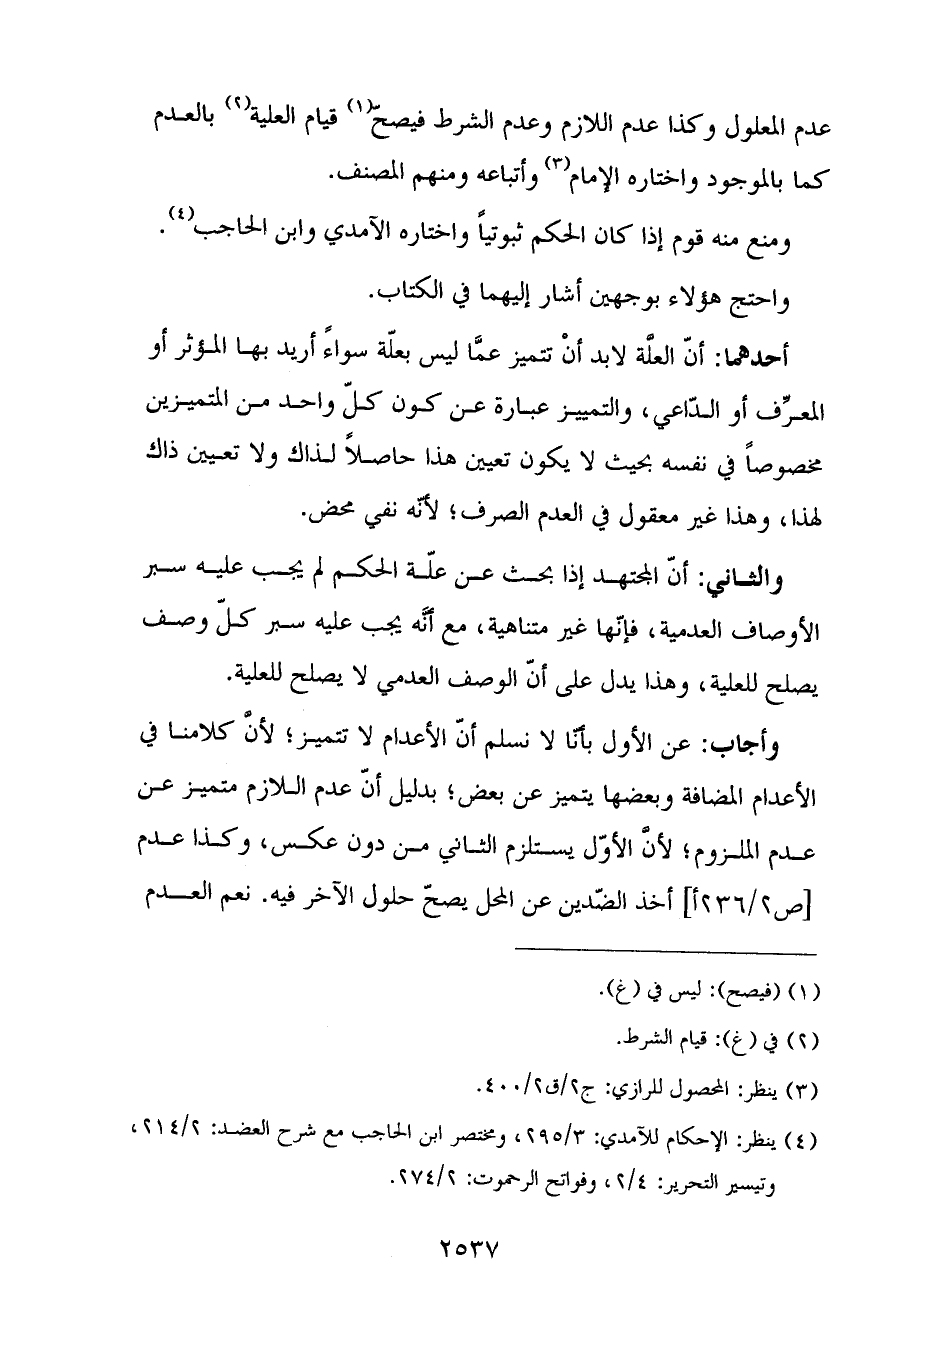 عدم المعلول وكذا عدم اللازم وعدم الشرط فيصحّ(١) قيام العلية(٢) بالعدم
كما بالموجود واختاره الإمام(٣) وأتباعه ومنهم المصنف.
ومنع منه قوم إذا كان الحكم ثبوتياً واختاره الآمدي وابن الحاجب(٤).
واحتج هؤلاء بوجهين أشار إليهما في الكتاب.
أحدهما: أنّ العلَّة لابد أنْ تتميز عمَّا ليس بعلّة سواءً أريد بها المؤثر أو
المعرِّف أو الدّاعي، والتمييز عبارة عن كون كلّ واحد من المتميزين
مخصوصاً في نفسه بحيث لا يكون تعيين هذا حاصلاً لذاك ولا تعيين ذاك
لهذا، وهذا غير معقول في العدم الصرف؛ لأنّه نفي محض.
والثاني: أنّ المجتهد إذا بحث عن علّة الحكم لم يجب عليه سبر
الأوصاف العدمية، فإنّها غير متناهية، مع أنَّه يجب عليه سبر كلّ وصف
يصلح للعلية، وهذا يدل على أنّ الوصف العدمي لا يصلح للعلية.
وأجاب: عن الأول بأنّا لا نسلم أنّ الأعدام لا تتميز؛ لأنَّ كلامنا في
الأعدام المضافة وبعضها يتميز عن بعض؛ بدليل أنّ عدم اللازم متميز عن
عدم الملزوم؛ لأنَّ الأوّل يستلزم الثاني من دون عكس، وكذا عدم
[ص٢/٢٣٦أ] أخذ الضّدين عن المحل يصحّ حلول الآخر فيه. نعم العدم
(١) (فيصح): ليس في (غ).
(٢) في (غ): قيام الشرط.
(٣) ينظر: المحصول للرازي: ج٢/ق٢/٤٠٠.
(٤) ينظر: الإحكام للآمدي: ٢٩٥/٣، ومختصر ابن الحاجب مع شرح العضد: ٢١٤/٢،
وتيسير التحرير: ٢/٤، وفواتح الرحموت: ٢٧٤/٢.
٢٥٣٧